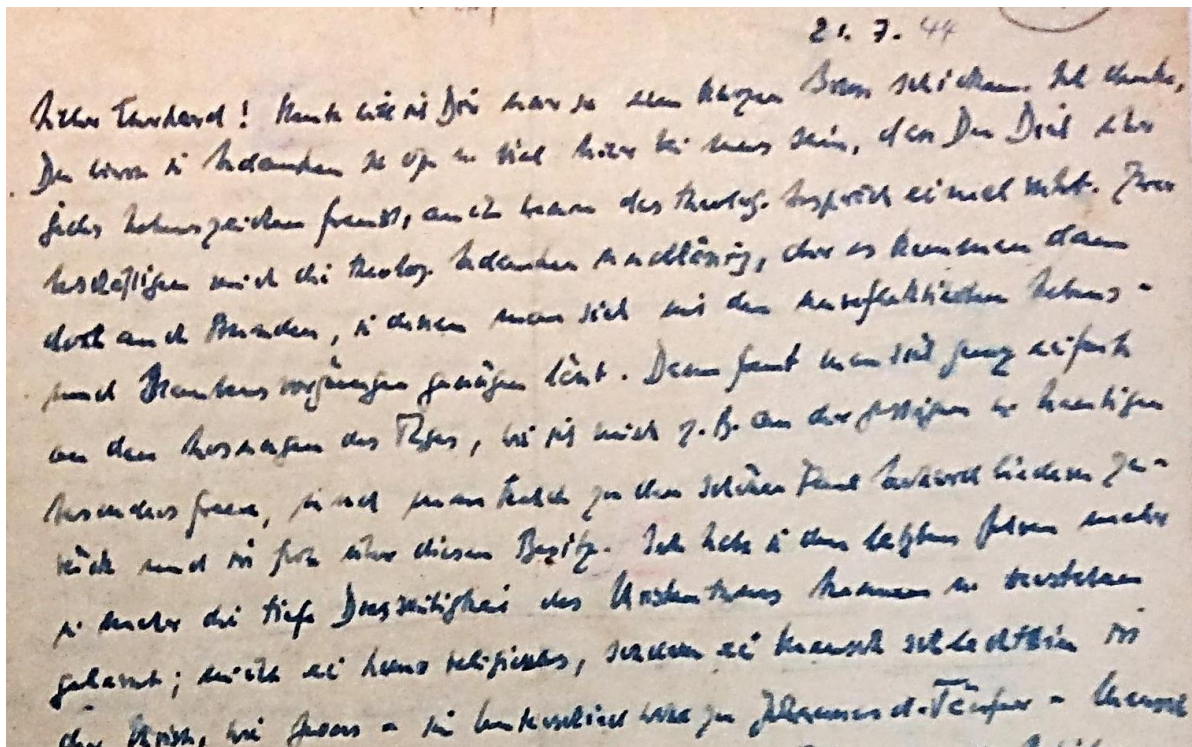 21. 7. 44
Lieber Eberhard! Heute will ich Dir nur so einen kurzen Gruss schicken. Ich denke,
Du wirst in Gedanken so oft u. viel hier bei uns sein, dass Du Dich über
jedes Lebenszeichen freust, auch wenn das theolog. Gespräch einmal ruht. Zwar
beschäftigen mich die theolog. Gedanken unablässig, aber es kommen dann
doch auch Stunden, in denen man sich mit den unreflektierten Lebens-
und Glaubensvorgängen genügen lässt. Dann freut man sich ganz einfach
an den Losungen des Tages, wie ich mich z. B. an der gestrigen u. heutigen
besonders freue, und man kehrt zu den schönen Paul Gerhardtliedern zu-
rück und ist froh über diesen Besitz. Ich habe in den letzten Jahren mehr
u. mehr die tiefe Diesseitigkeit des Christentums kennen u. verstehen
gelernt; nicht ein homo religiosus, sondern ein Mensch schlechthin ist
der Christ, wie Jesus - im Unterschied wohl zu Johannes d. Täufer - Mensch